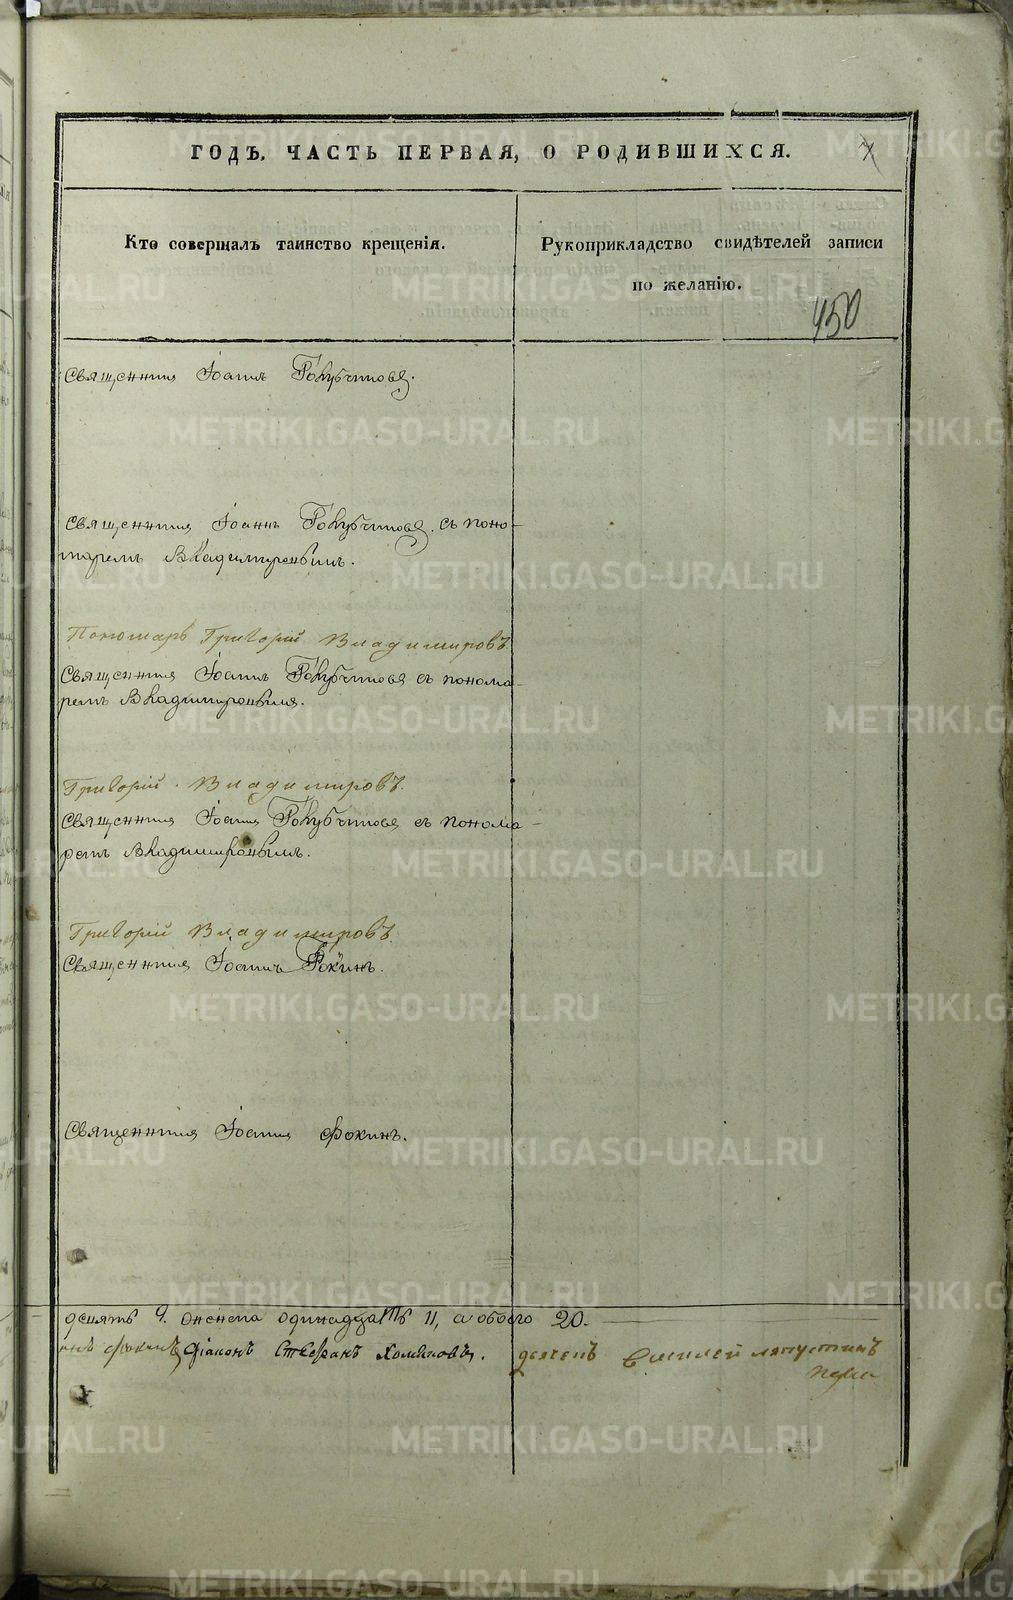 ГОДЪ. ЧАСТЬ ПЕРВАЯ, О РОДИВШИХСЯ.
Кто совершалъ таинство крещенія.
Рукоприкладство свидѣтелей записи
по желанію.
450
Священникъ Іоаннъ
Священникъ Іоаннъ съ поно-
маремъ Владимировымъ.
Пономарь Григорій Владимировъ
Священникъ Іоаннъ съ понома-
ремъ Владимировымъ.
Григорій Владимировъ.
Священникъ Іоаннъ съ понома-
ремъ Владимировымъ.
Григорій Владимировъ.
Священникъ Іоаннъ Фокинъ.
Священникъ Іоаннъ Фокинъ.
девять 9. женска одинадцать 11, а обоего 20.
Фокинъ, Діаконъ Стефанъ Хомяковъ. дьячекъ Василей Лапустинъ
METRIKI.GASO-URAL.RU